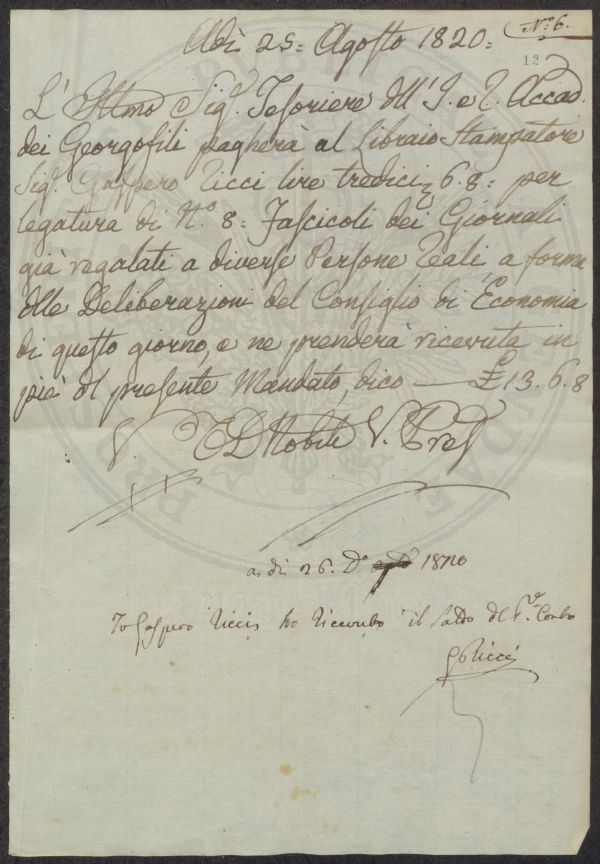 N.º 6.
Adì 25= Agosto 1820=
12
L' Ill.mo Sig.r Tesoriere dell' I. e R. Accad.
dei Georgofili pagherà al Libraio Stampatore
Sig.r Gaspero Ricci lire tredici 6.8= per
legatura di N.º 8= Fascicoli dei Giornali
già regalati a diverse Persone Reali a forma
delle Deliberazioni del Consiglio di Economia
di questo giorno, e ne prenderà ricevuta in
piè del presente Mandato, dico — £ 13.6.8
V. Nobili V. Pres
a dì 26. D.º 1820
Io Gaspero Ricci ho Ricevuto il saldo del Conto
G Ricci